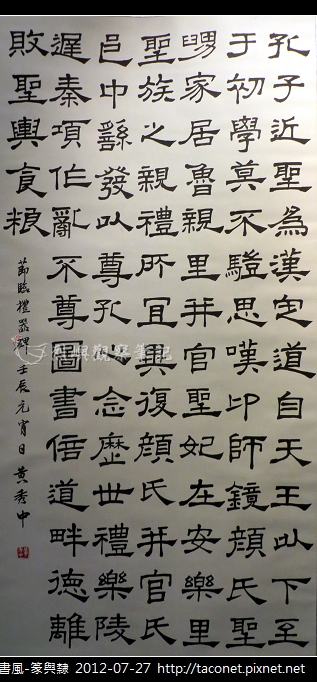 孔子近聖為漢定道自天王以下至
于初學莫不驥思嘆卬師鏡顏氏聖
舅家居魯親里并官聖妃在安樂里
聖族之親禮所宜異復顏氏并官氏
邑中繇發以尊孔心念歷世禮樂陵
遲秦項作亂不尊圖書倍道畔德離
敗聖輿食粮
節臨禮器碑壬辰元宵日黃秀中
書風-篆與隸 2012-07-27 http://taconet.pixnet.net